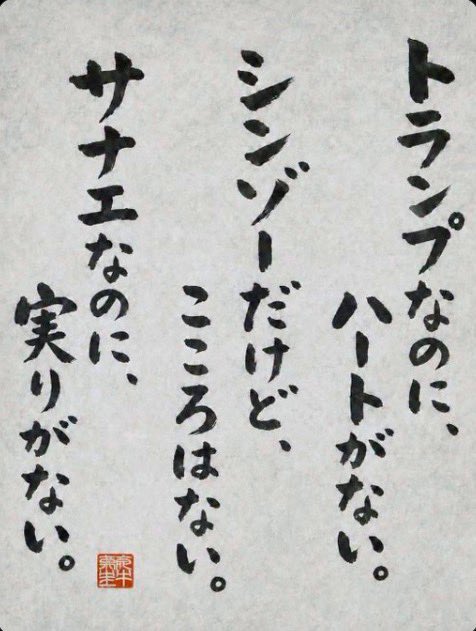 トランプなのに、
ハートがない。
シンゾーだけど、
こころはない。
サナエなのに、
実りがない。